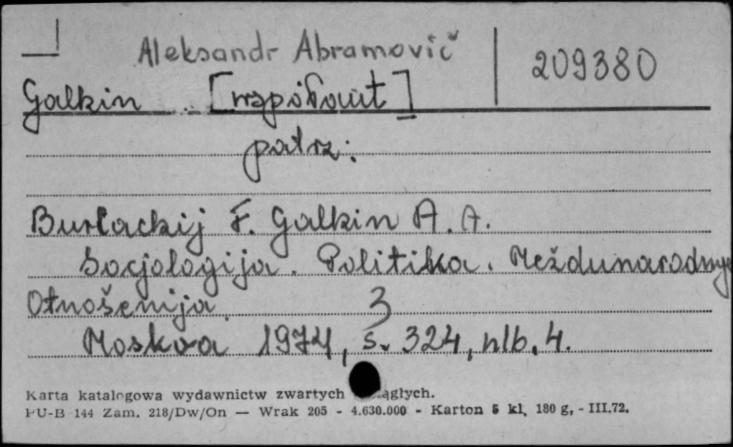 Aleksandr Abramovič
209380
Galkin [współaut]
patrz:
Burłackij F. Galkin A. A.
Socjologija. Politika. Meždunarodnye
Otnošenija.
3
Moskva 1974, s. 324, nlb. 4.
Karta katalogowa wydawnictw zwartych ciągłych.
PU-B 144 Zam. 218/Dw/On — Wrak 205 - 4.630.000 - Karton 5 kl, 180 g, - III.72.